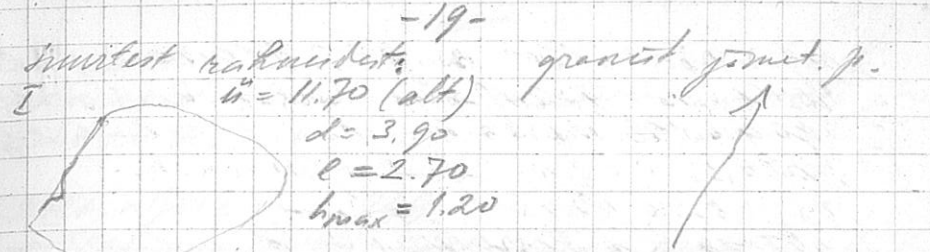 -19-
Suurtest rahnudest: graniit
I ü = 11.70 (alt)
d = 3.90
l = 2.70
hmax = 1.20